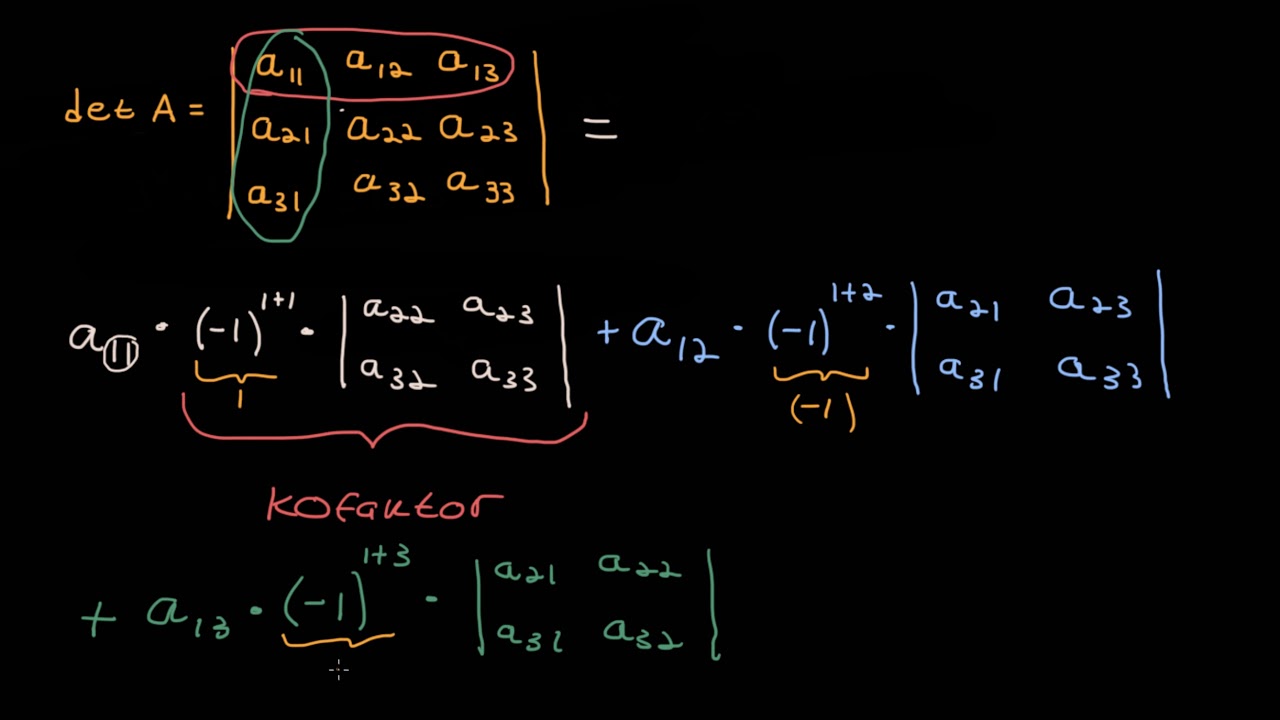 det A = | a₁₁ a₁₂ a₁₃ |
| a₂₁ a₂₂ a₂₃ | =
| a₃₁ a₃₂ a₃₃ |
a₁₁ · (-1)¹⁺¹ · | a₂₂ a₂₃ | + a₁₂ · (-1)¹⁺² · | a₂₁ a₂₃ |
| a₃₂ a₃₃ | | a₃₁ a₃₃ |
1 (-1)
kofaktor
+ a₁₃ · (-1)¹⁺³ · | a₂₁ a₂₂ |
| a₃₁ a₃₂ |